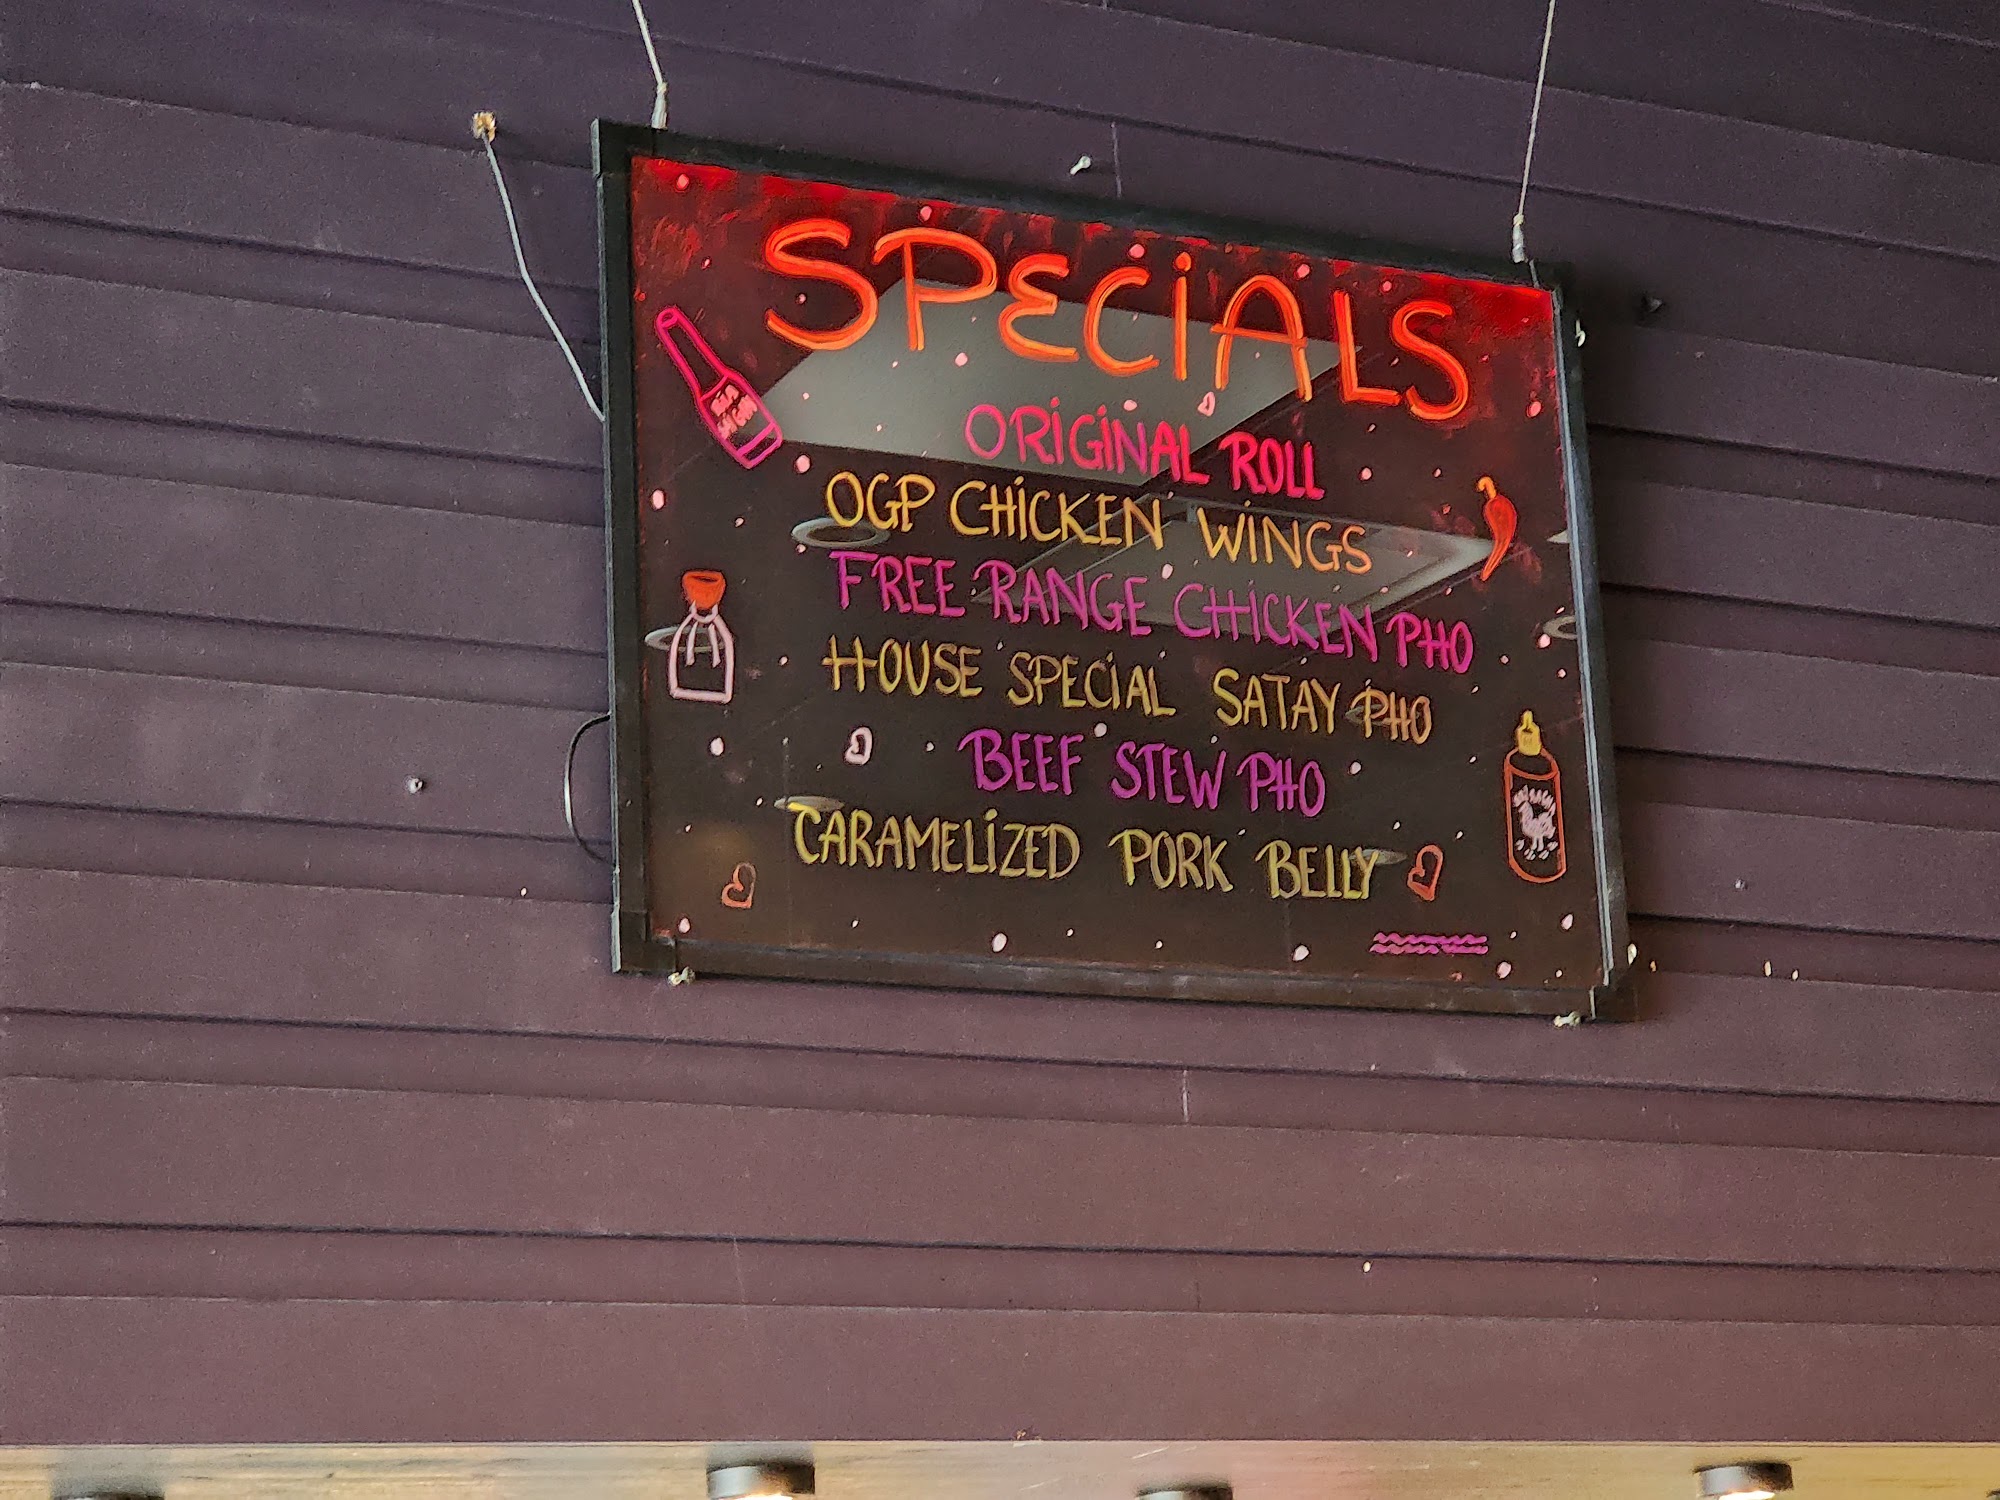 SPECIALS
ORIGINAL ROLL
OGP CHICKEN WINGS
FREE RANGE CHICKEN PHO
HOUSE SPECIAL SATAY PHO
BEEF STEW PHO
CARAMELIZED PORK BELLY